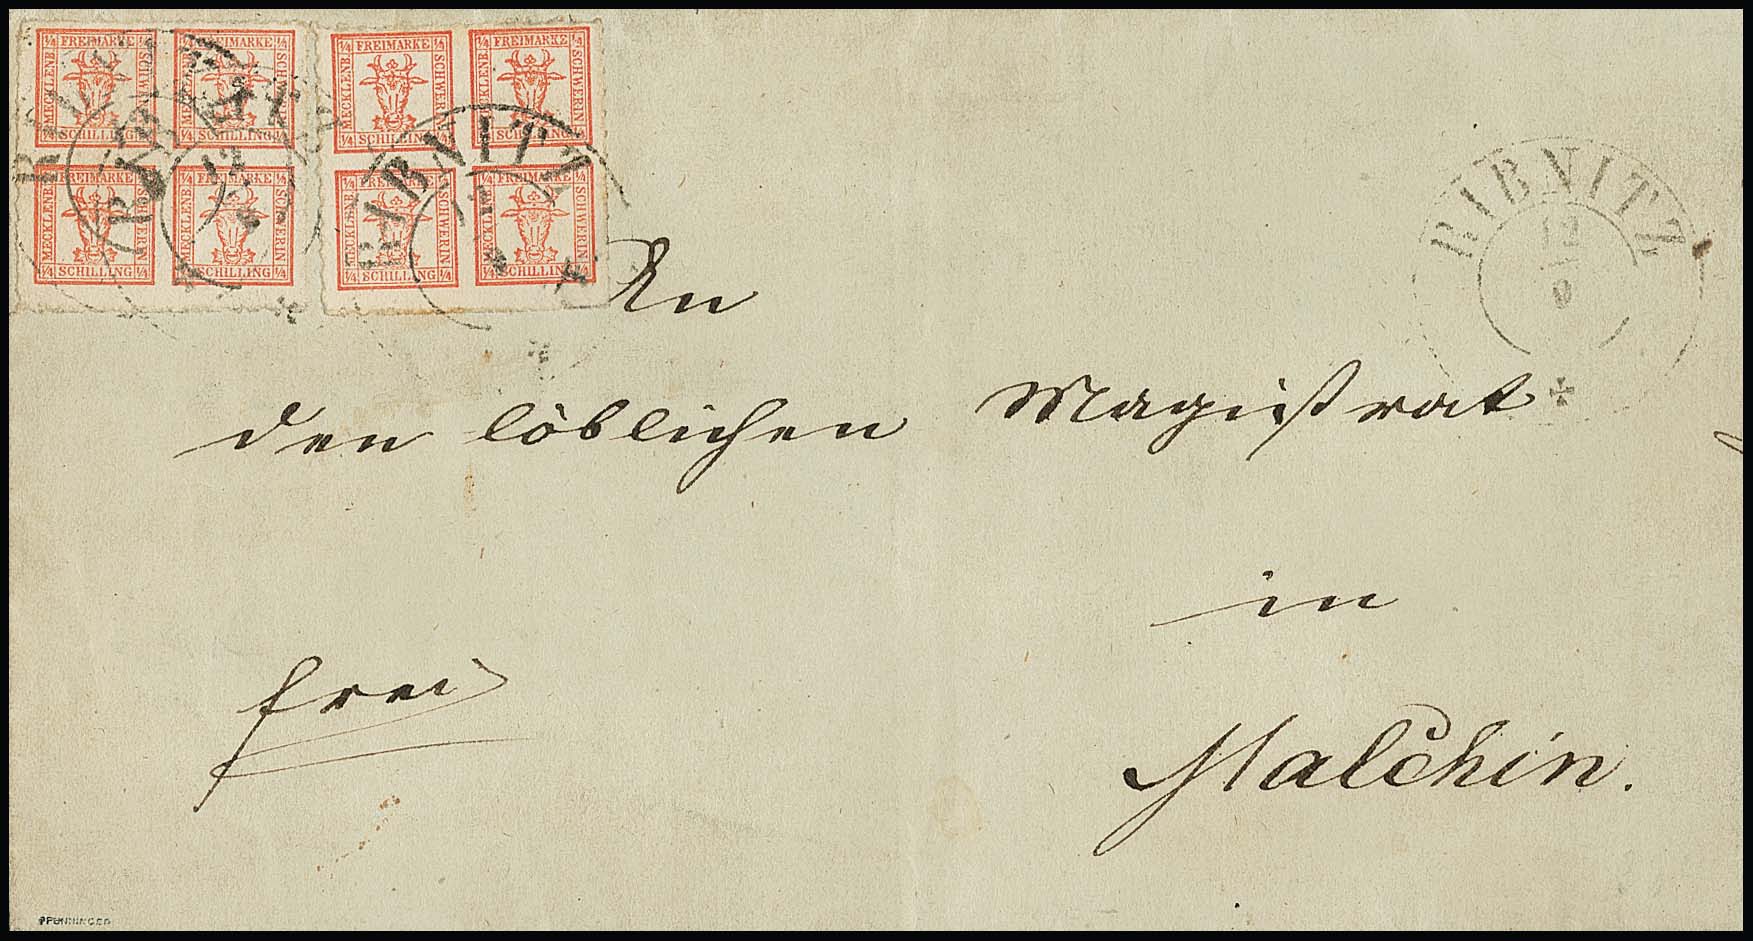 ¼ FREIMARKE ¼
MECKLENB. SCHWERIN
¼ SCHILLING ¼
¼ FREIMARKE ¼
MECKLENB. SCHWERIN
¼ SCHILLING ¼
¼ FREIMARKE ¼
MECKLENB. SCHWERIN
¼ SCHILLING ¼
¼ FREIMARKE ¼
MECKLENB. SCHWERIN
¼ SCHILLING ¼
¼ FREIMARKE ¼
MECKLENB. SCHWERIN
¼ SCHILLING ¼
¼ FREIMARKE ¼
MECKLENB. SCHWERIN
¼ SCHILLING ¼
¼ FREIMARKE ¼
MECKLENB. SCHWERIN
¼ SCHILLING ¼
¼ FREIMARKE ¼
MECKLENB. SCHWERIN
¼ SCHILLING ¼
RIBNITZ
RIBNITZ
12
RIBNITZ
RIBNITZ
12
An
den löblichen Magistrat
in
frei
Malchin.
PFENNINGER